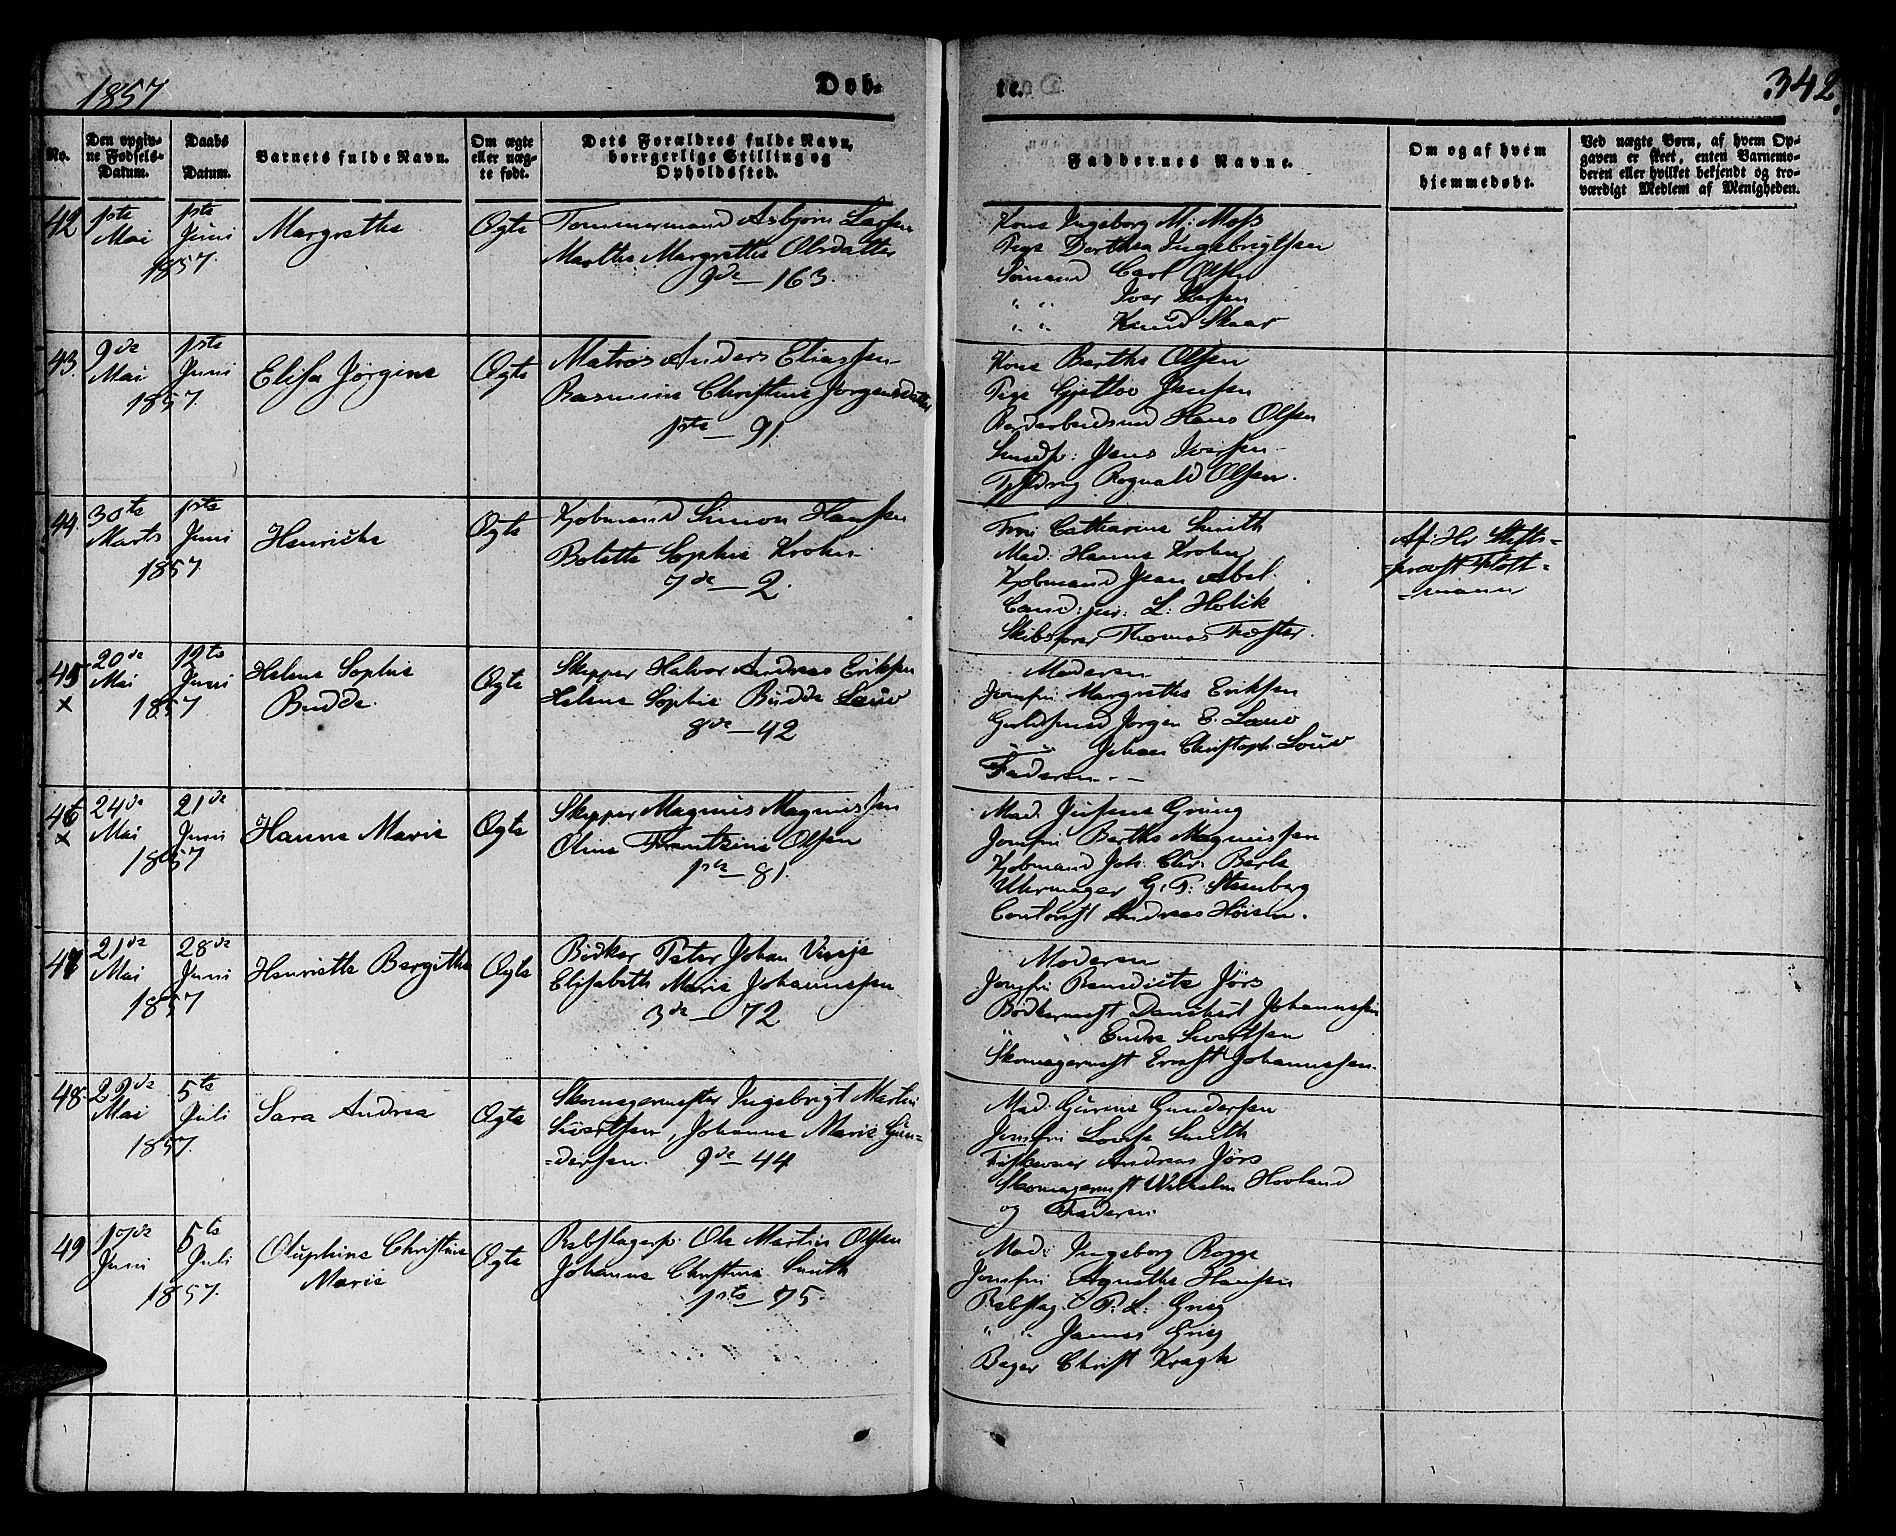 1857
Døb-
te.
342.
No.
Den opgiv-
ne Fødsels-
Datum.
Daabs
Datum.
Barnets fulde Navn.
Om ægte
eller uæg-
te født.
Dets Forældres fulde Navn,
borgerlige Stilling og
Opholdssted.
Faddernes Navne.
Om og af hvem
hjemmedøbt.
Ved uægte Børn, af hvem Op-
gaven er skeet, enten Barnemo-
deren eller hvilket bekjendt og tro-
værdigt Medlem af Menigheden.
42
1ste Mai
1ste Juni
1857.
Margrethe
Ægte
Tømmermand Asbjørn Larsen
Marthe Margrethe Olsdatter
9de — 163.
Kone Ingeborg M: Moss
Pige Dorthea Ingebrigtsen
Sømand Carl Olsen
" " Iver Larsen
" " Knud Skaar
43.
9de Mai
1ste Juni
1857.
Elisa Jørgine
Ægte
Matros Anders Eliassen
Rasmine Christine Jørgensdatter
1ste — 91.
Kone Berthe Olsen
Pige Gjertloo Jansen
Hans Olsen
Smedsv: Jens Iversen
Rognald Olsen.
44.
30te Marts
1ste Juni
1857.
Henriche
Ægte
Kjøbmand Simon Hansen
Bolette Sophie Krohn
7de — 2.
Fru Catharine Smith
Mad: Hanne Krohn
Kjøbmand Jean Abel.
Cand: jur: L: Holck
Skibsfører Thomas Troster.
Af Hr Stifts=
=provst Flott=
=mann
45
x
20de Mai
12te Juni
1857
Helene Sophie
Budde.
Ægte
Skipper Halvor Andreas Eriksen
Helene Sophie Budde Louv
8de — 42
Moderen
Jomfru Margrethe Eriksen
Guldsmed Jørgen E. Louv
" " Johan Christoph. Louv
Faderen.
46
x
24de Mai
21de Juni
1857
Hanne Marie
Ægte
Skipper Magnus Magnussen
Oline Frantzine Olsen
1ste — 81.
Mad. Grung
Jomfru Berthe Magnussen
Kjøbmand Joh. Chr: Berle
Uhrmager G. P. Steenberg
Contorist Andreas Høisen.
47
21de Mai
28de Juni
1857
Henriette Bergithe
Ægte
Bødker Peter Johan Vinje
Elisabeth Marie Johannessen
3de — 72
Moderen
Jomfru Benedicte Jørs
Bødkermest Danckert Johannessen
" " Endre Sivertsen
Skomagermest Ernst Johannessen.
48.
29de Mai
5te Juli
1857.
Sara Andrea
Ægte
Skomagermester Ingebrigt Martin
Sivertsen, Johanne Marie Gun=
=dersen. 9de — 44
Mad. Gurine Gundersen
Jomfru Lovise Smith
Andreas Jørs
Skomagermst Wilhelm Hovland
og Faderen
49
17de Juni
5te Juli
1857.
Oluphine Christine
Marie
Ægte
Rebslagersv. Ole Martin Olsen
Johanne Christine Smith
1ste — 75.
Mad: Ingeborg Rogge
Jomfru Agnethe Hansen
Rebslag. P. L. Grieg
" " James Grieg
Bager Christ Kragh